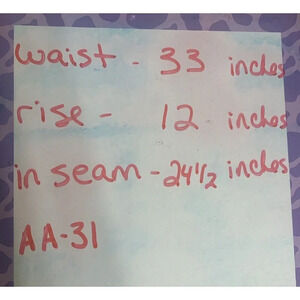 waist - 33 inches
rise - 12 inches
in seam - 24 1/2 inches
AA-31